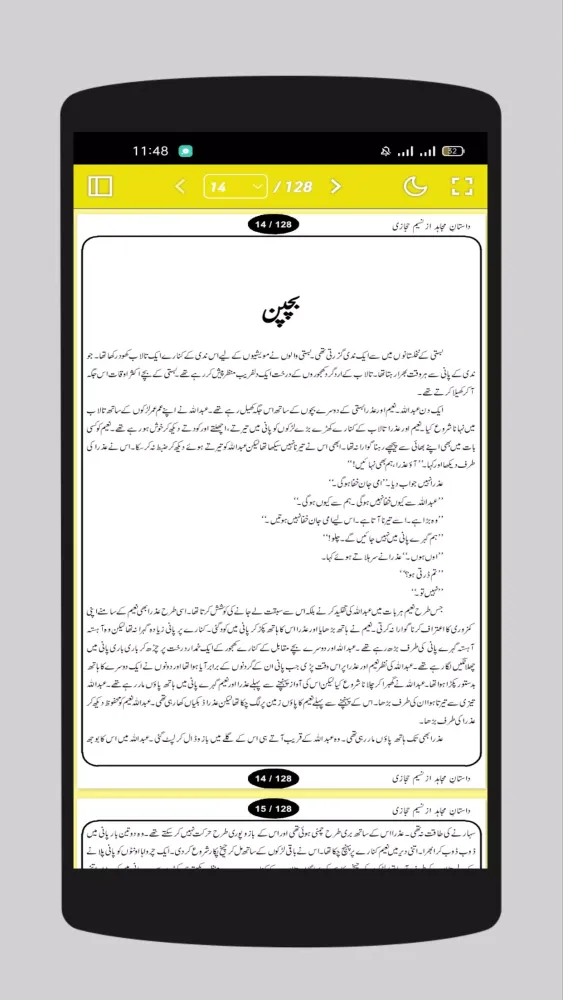 11:48
82
14
/ 128
14 / 128
داستان مجاہد از نسیم حجازی
بچپن
بستی کے نخلستانوں میں سے ایک ندی گزرتی تھی۔ بستی والوں نے مویشیوں کے لیے اس ندی کے کنارے ایک تالاب کھود رکھا تھا۔ جو
ندی کے پانی سے ہر وقت بھرا رہتا تھا۔ تالاب کے اردگرد کھجوروں کے درخت ایک دلفریب منظر پیش کر رہے تھے۔ بستی کے بچے اکثر اوقات اس جگہ
آ کر کھیلا کرتے تھے۔
ایک دن عبداللہ۔ نعیم اور عذرا بستی کے دوسرے بچوں کے ساتھ اس جگہ کھیل رہے تھے۔ عبداللہ نے اپنے ہم عمر لڑکوں کے ساتھ تالاب
میں نہانا شروع کیا۔ نعیم اور عذرا تالاب کے کنارے کھڑے بڑے لڑکوں کو پانی میں تیرتے، اچھلتے اور کودتے دیکھ کر خوش ہو رہے تھے۔ نعیم کو کسی
بات میں بھی اپنے بھائی سے پیچھے رہنا گوارا نہ تھا۔ ابھی اس نے تیرنا نہیں سیکھا تھا لیکن عبداللہ کو تیرتے ہوئے دیکھ کر ضبط نہ کر سکا۔ اس نے عذرا کی
طرف دیکھا اور کہا۔ ’’آؤ عذرا، ہم بھی نہائیں!‘‘
عذرا نہیں جواب دیا۔ ’’امی جان خفا ہوں گی۔‘‘
’’عبداللہ سے کیوں خفا نہیں ہوں گی۔ ہم سے کیوں ہوں گی۔‘‘
’’وہ بڑا ہے۔ اسے تیرنا آتا ہے۔ اس لیے امی جان خفا نہیں ہوتیں۔‘‘
’’ہم گہرے پانی میں نہیں جائیں گے۔ چلو!‘‘
’’اوں ہوں۔‘‘ عذرا نے سر ہلاتے ہوئے کہا۔
’’تم ڈرتی ہو؟‘‘
’’نہیں تو۔‘‘
جس طرح نعیم ہر بات میں عبداللہ کی تقلید کرنے بلکہ اس سے سبقت لے جانے کی کوشش کرتا تھا۔ اسی طرح عذرا بھی نعیم کے سامنے اپنی
کمزوری کا اعتراف کرنا گوارا نہ کرتی۔ نعیم نے ہاتھ بڑھایا اور عذرا اس کا ہاتھ پکڑ کر پانی میں کود گئی۔ کنارے پر پانی زیادہ گہرا نہ تھا لیکن وہ آہستہ
آہستہ گہرے پانی کی طرف بڑھ رہے تھے۔ عبداللہ اور دوسرے بچے مقابل کے کنارے کھجور کے ایک خمدار درخت پر چڑھ کر باری باری پانی میں
چھلانگیں لگا رہے تھے۔ عبداللہ کی نظر نعیم اور عذرا پر اس وقت پڑی جب پانی ان کے گردنوں کے برابر آیا ہوا تھا اور دونوں نے ایک دوسرے کا ہاتھ
بدستور پکڑا ہوا تھا۔ عبداللہ نے گھبرا کر چلانا شروع کیا لیکن اس کی آواز پہنچنے سے پہلے عذرا اور نعیم گہرے پانی میں ہاتھ پاؤں مار رہے تھے۔ عبداللہ
تیزی سے تیرتا ہوا ان کی طرف بڑھا۔ اس کے پہنچنے سے پہلے نعیم کا پاؤں زمین پر لگ چکا تھا لیکن عذرا ڈبکیاں کھا رہی تھی۔ عبداللہ نعیم کو محفوظ دیکھ کر
عذرا کی طرف بڑھا۔
عذرا ابھی تک ہاتھ پاؤں مار رہی تھی۔ وہ عبداللہ کے قریب آتے ہی اس کے گلے میں بازو ڈال کر لپٹ گئی۔ عبداللہ میں اس کا بوجھ
14 / 128
داستان مجاہد از نسیم حجازی
15 / 128
داستان مجاہد از نسیم حجازی
سہارنے کی طاقت نہ تھی۔ عذرا اس کے ساتھ بری طرح چمٹی ہوئی تھی اور اس کے بازو پوری طرح حرکت نہیں کر سکتے تھے۔ وہ دو تین بار پانی میں
ڈوب ڈوب کر ابھرا۔ اتنی دیر میں نعیم کنارے پر پہنچ چکا تھا۔ اس نے باقی لڑکوں کے ساتھ مل کر چیخ پکار شروع کر دی۔ ایک چرواہا اونٹوں کو پانی پلانے